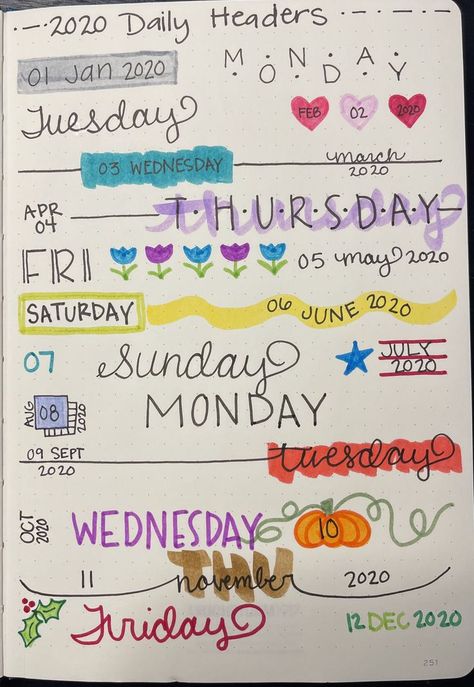 2020 Daily Headers
01 Jan 2020 MONDAY
Tuesday FEB 02 2020
03 WEDNESDAY march 2020
APR 04 THURSDAY thursday
FRI 05 may 2020
SATURDAY 06 JUNE 2020
07 Sunday JULY 2020
AUG 08 2020 MONDAY
09 SEPT 2020 tuesday
OCT 2020 WEDNESDAY 10
THU
11 november 2020
Friday 12 DEC 2020
251